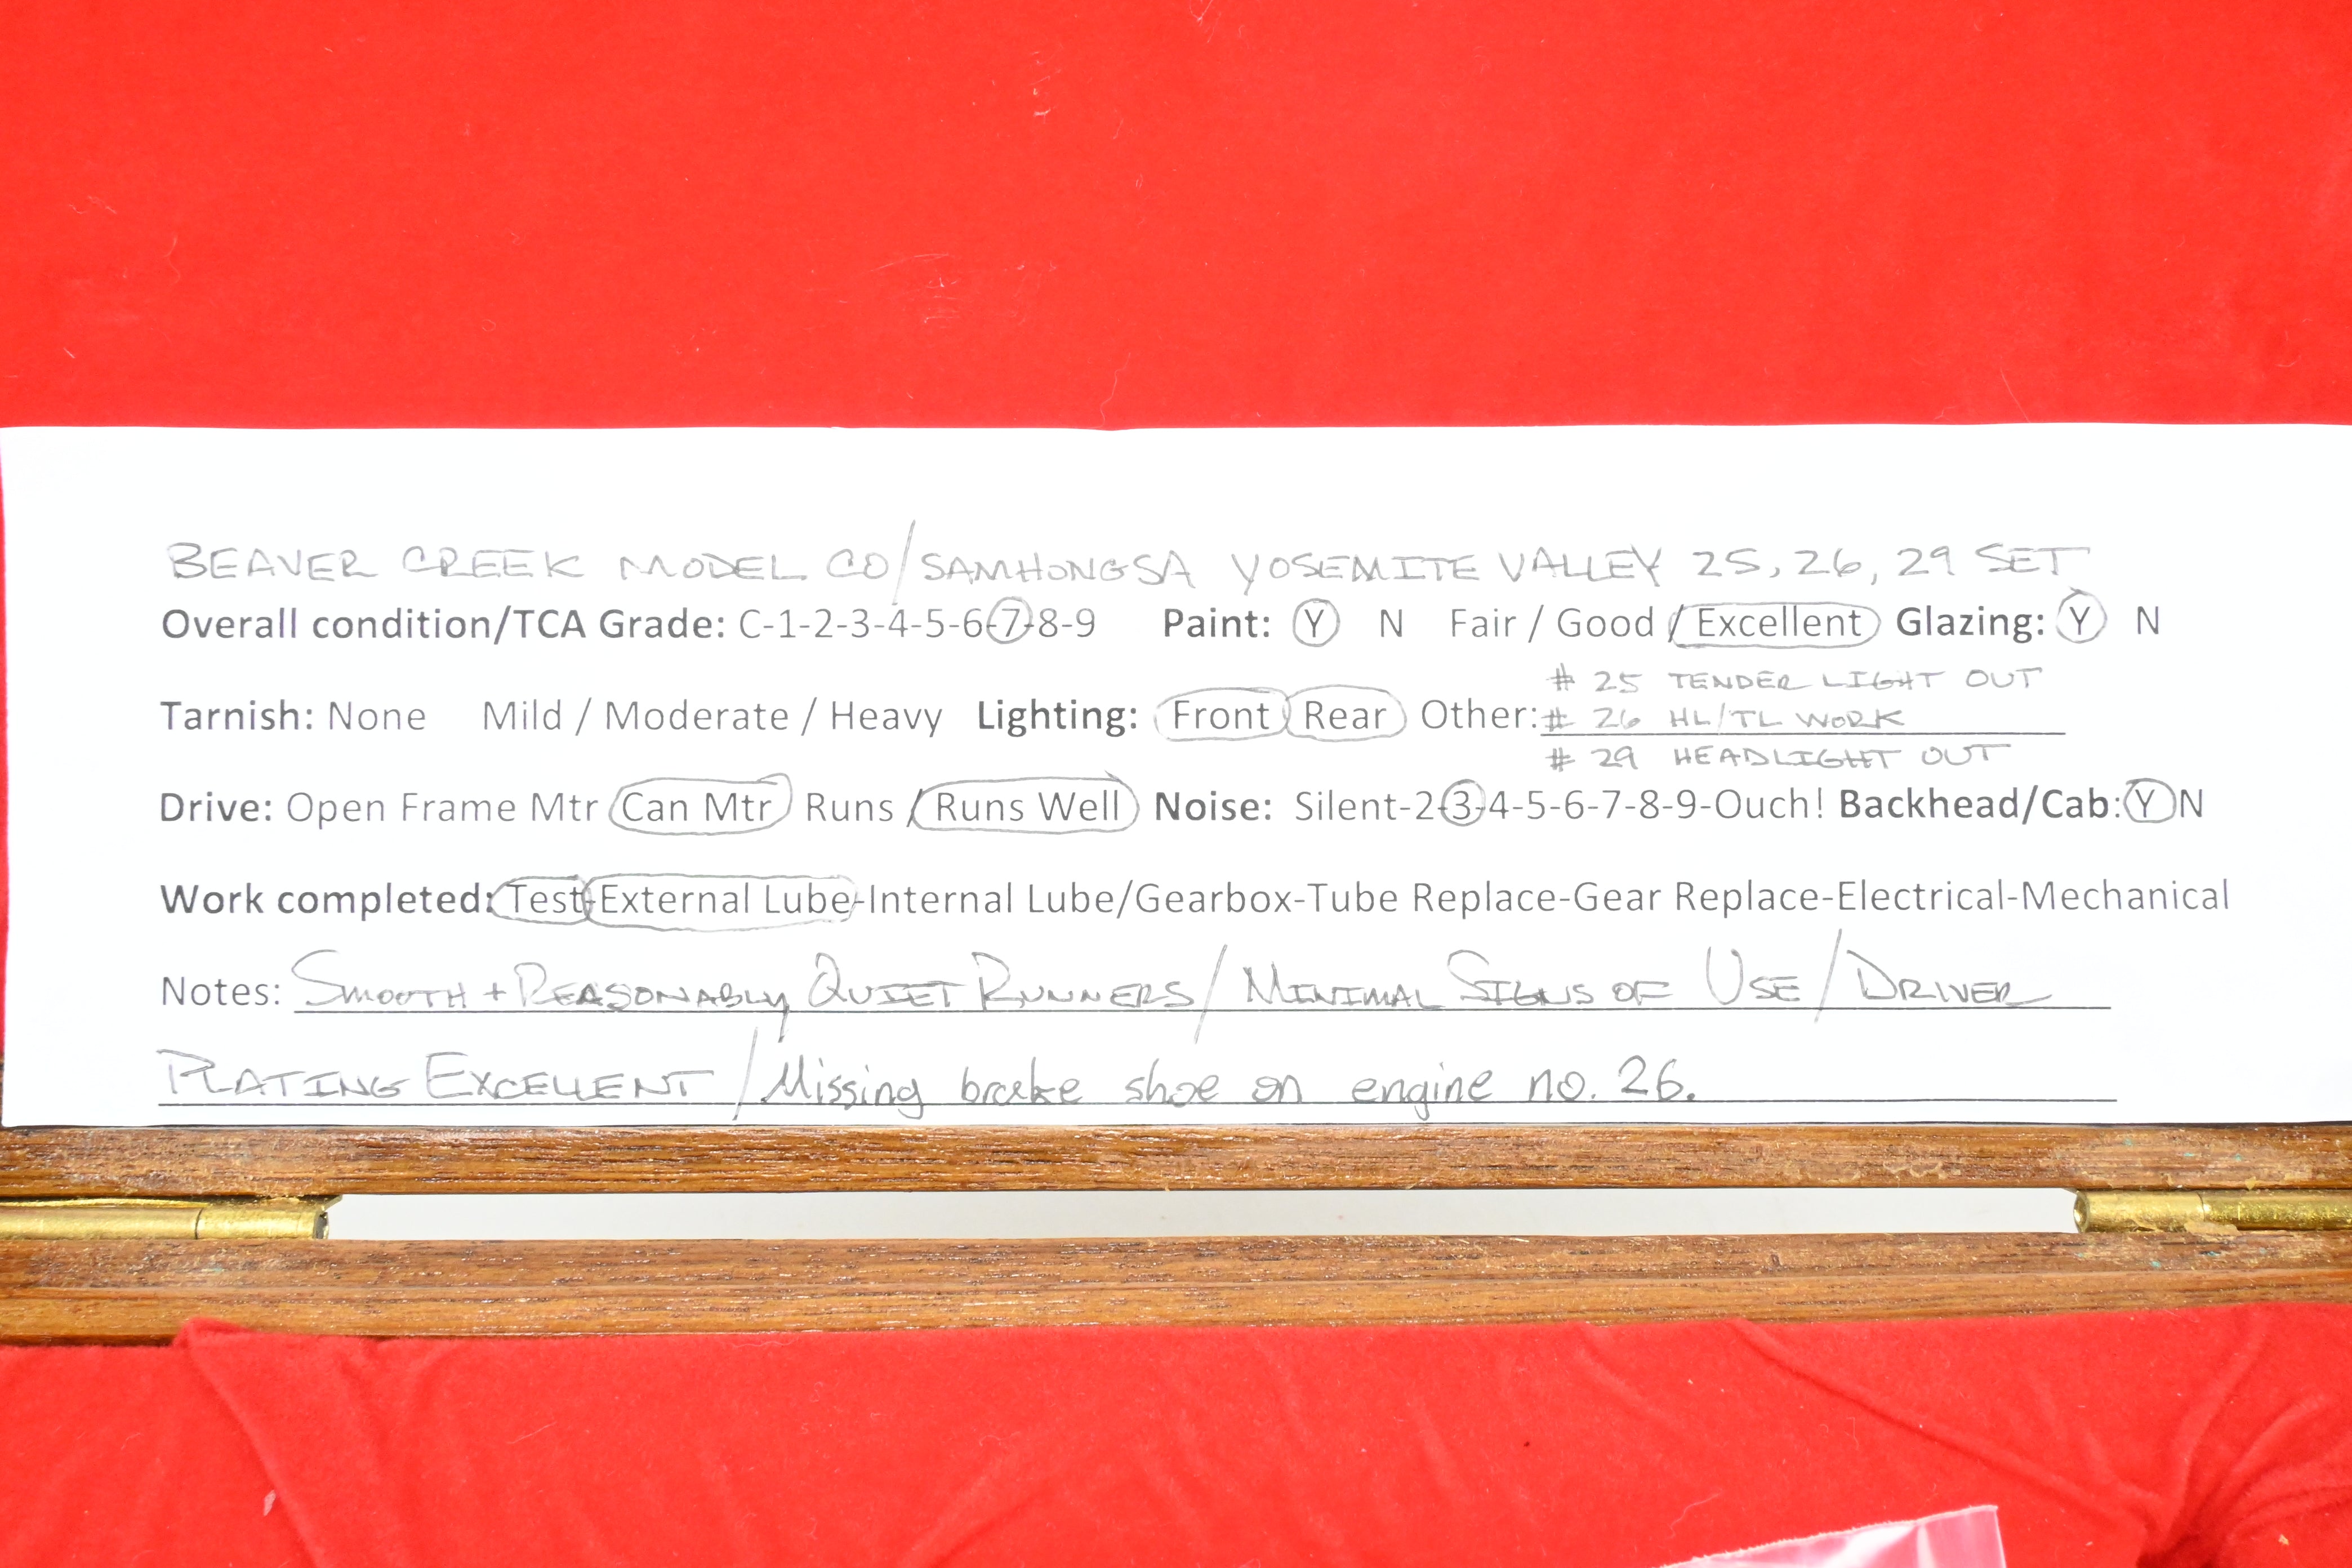 BEAVER CREEK MODEL CO/SAMHONGSA YOSEMITE VALLEY 25, 26, 29 SET
Overall condition/TCA Grade: C-1-2-3-4-5-6-7-8-9 Paint: Y N Fair / Good / Excellent Glazing: Y N
# 25 TENDER LIGHT OUT
Tarnish: None Mild / Moderate / Heavy Lighting: Front Rear Other: # 26 HL/TL WORK
# 29 HEADLIGHT OUT
Drive: Open Frame Mtr Can Mtr Runs / Runs Well Noise: Silent-2-3-4-5-6-7-8-9-Ouch! Backhead/Cab: Y N
Work completed: Test-External Lube-Internal Lube/Gearbox-Tube Replace-Gear Replace-Electrical-Mechanical
Notes: SMOOTH + REASONABLY QUIET RUNNERS / MINIMAL SIGNS OF USE / DRIVER
PLATING EXCELLENT / Missing brake shoe on engine no. 26.